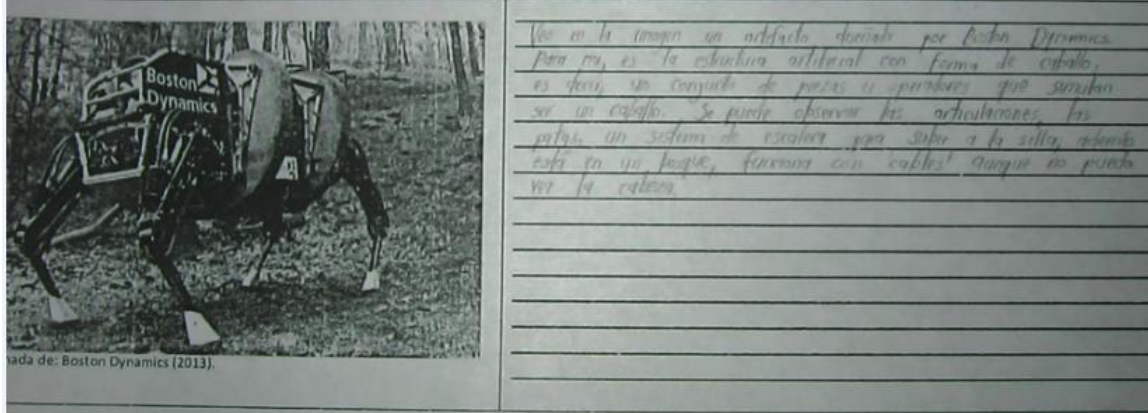 Boston
Dynamics
nada de: Boston Dynamics (2013).
Veo en la imagen un artefacto diseñado por Boston Dynamics.
Para mi, es la estructura artificial con forma de caballo,
es decir, un conjunto de piezas u operadores que simulan
ser un caballo. Se puede observar las articulaciones, las
patas, un sistema de escalera para subir a la silla, además
está en un bosque, funciona con cables aunque no puedo
ver la cabeza.